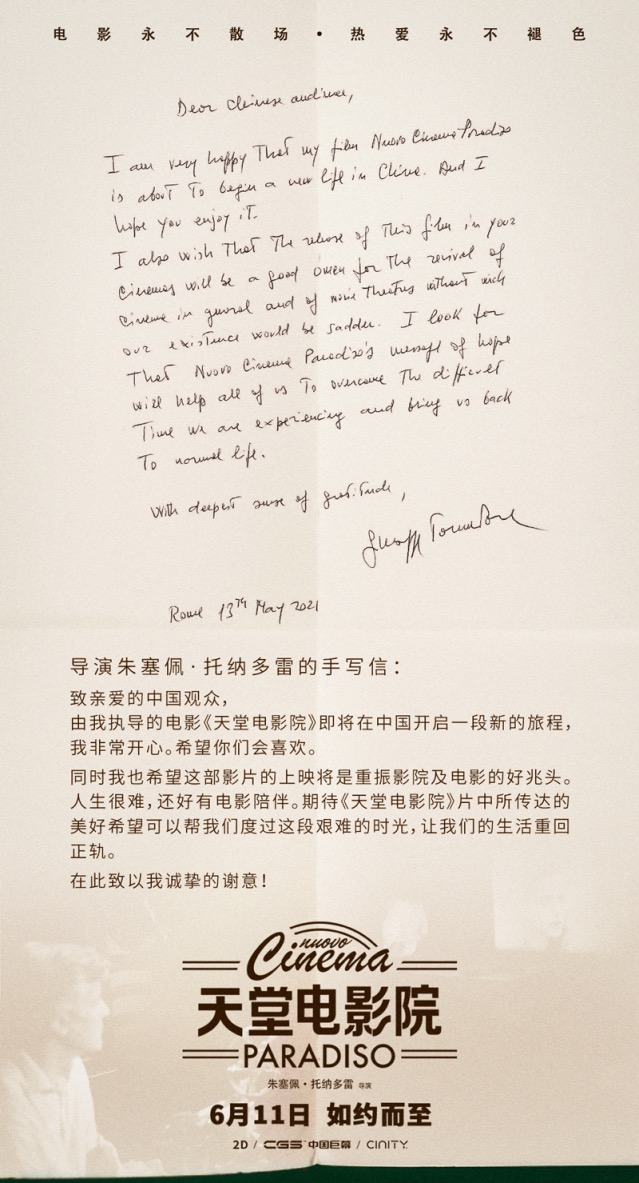 电影永不散场·热爱永不褪色
Dear Chinese audience,
I am very happy That my film Nuovo Cinema Paradiso
is about To begin a new life in China. And I
hope you enjoy iT.
I also wish That The release of This film in your
cinemas will be a good omen for The revival of
cinema in general and of movie Theatres without wich
our existence would be sadder. I look for
That Nuovo Cinema Paradiso's message of hope
will help all of us To overcome The difficult
Time we are experiencing and bring us back
To normal life.
With deepest sense of gratitude,
Rome 13TH May 2021
导演朱塞佩·托纳多雷的手写信：
致亲爱的中国观众，
由我执导的电影《天堂电影院》即将在中国开启一段新的旅程，
我非常开心。希望你们会喜欢。
同时我也希望这部影片的上映将是重振影院及电影的好兆头。
人生很难，还好有电影陪伴。期待《天堂电影院》片中所传达的
美好希望可以帮我们度过这段艰难的时光，让我们的生活重回
正轨。
在此致以我诚挚的谢意！
nuovo
Cinema
天堂电影院
PARADISO
朱塞佩·托纳多雷 导演
6月11日 如约而至
2D / CGS 中国巨幕 / CINITY